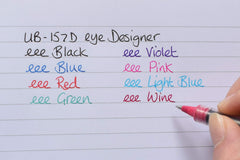 UB-157D eye Designer
eee Black eee Violet
eee Blue eee Pink
eee Red eee Light Blue
eee Green eee Wine